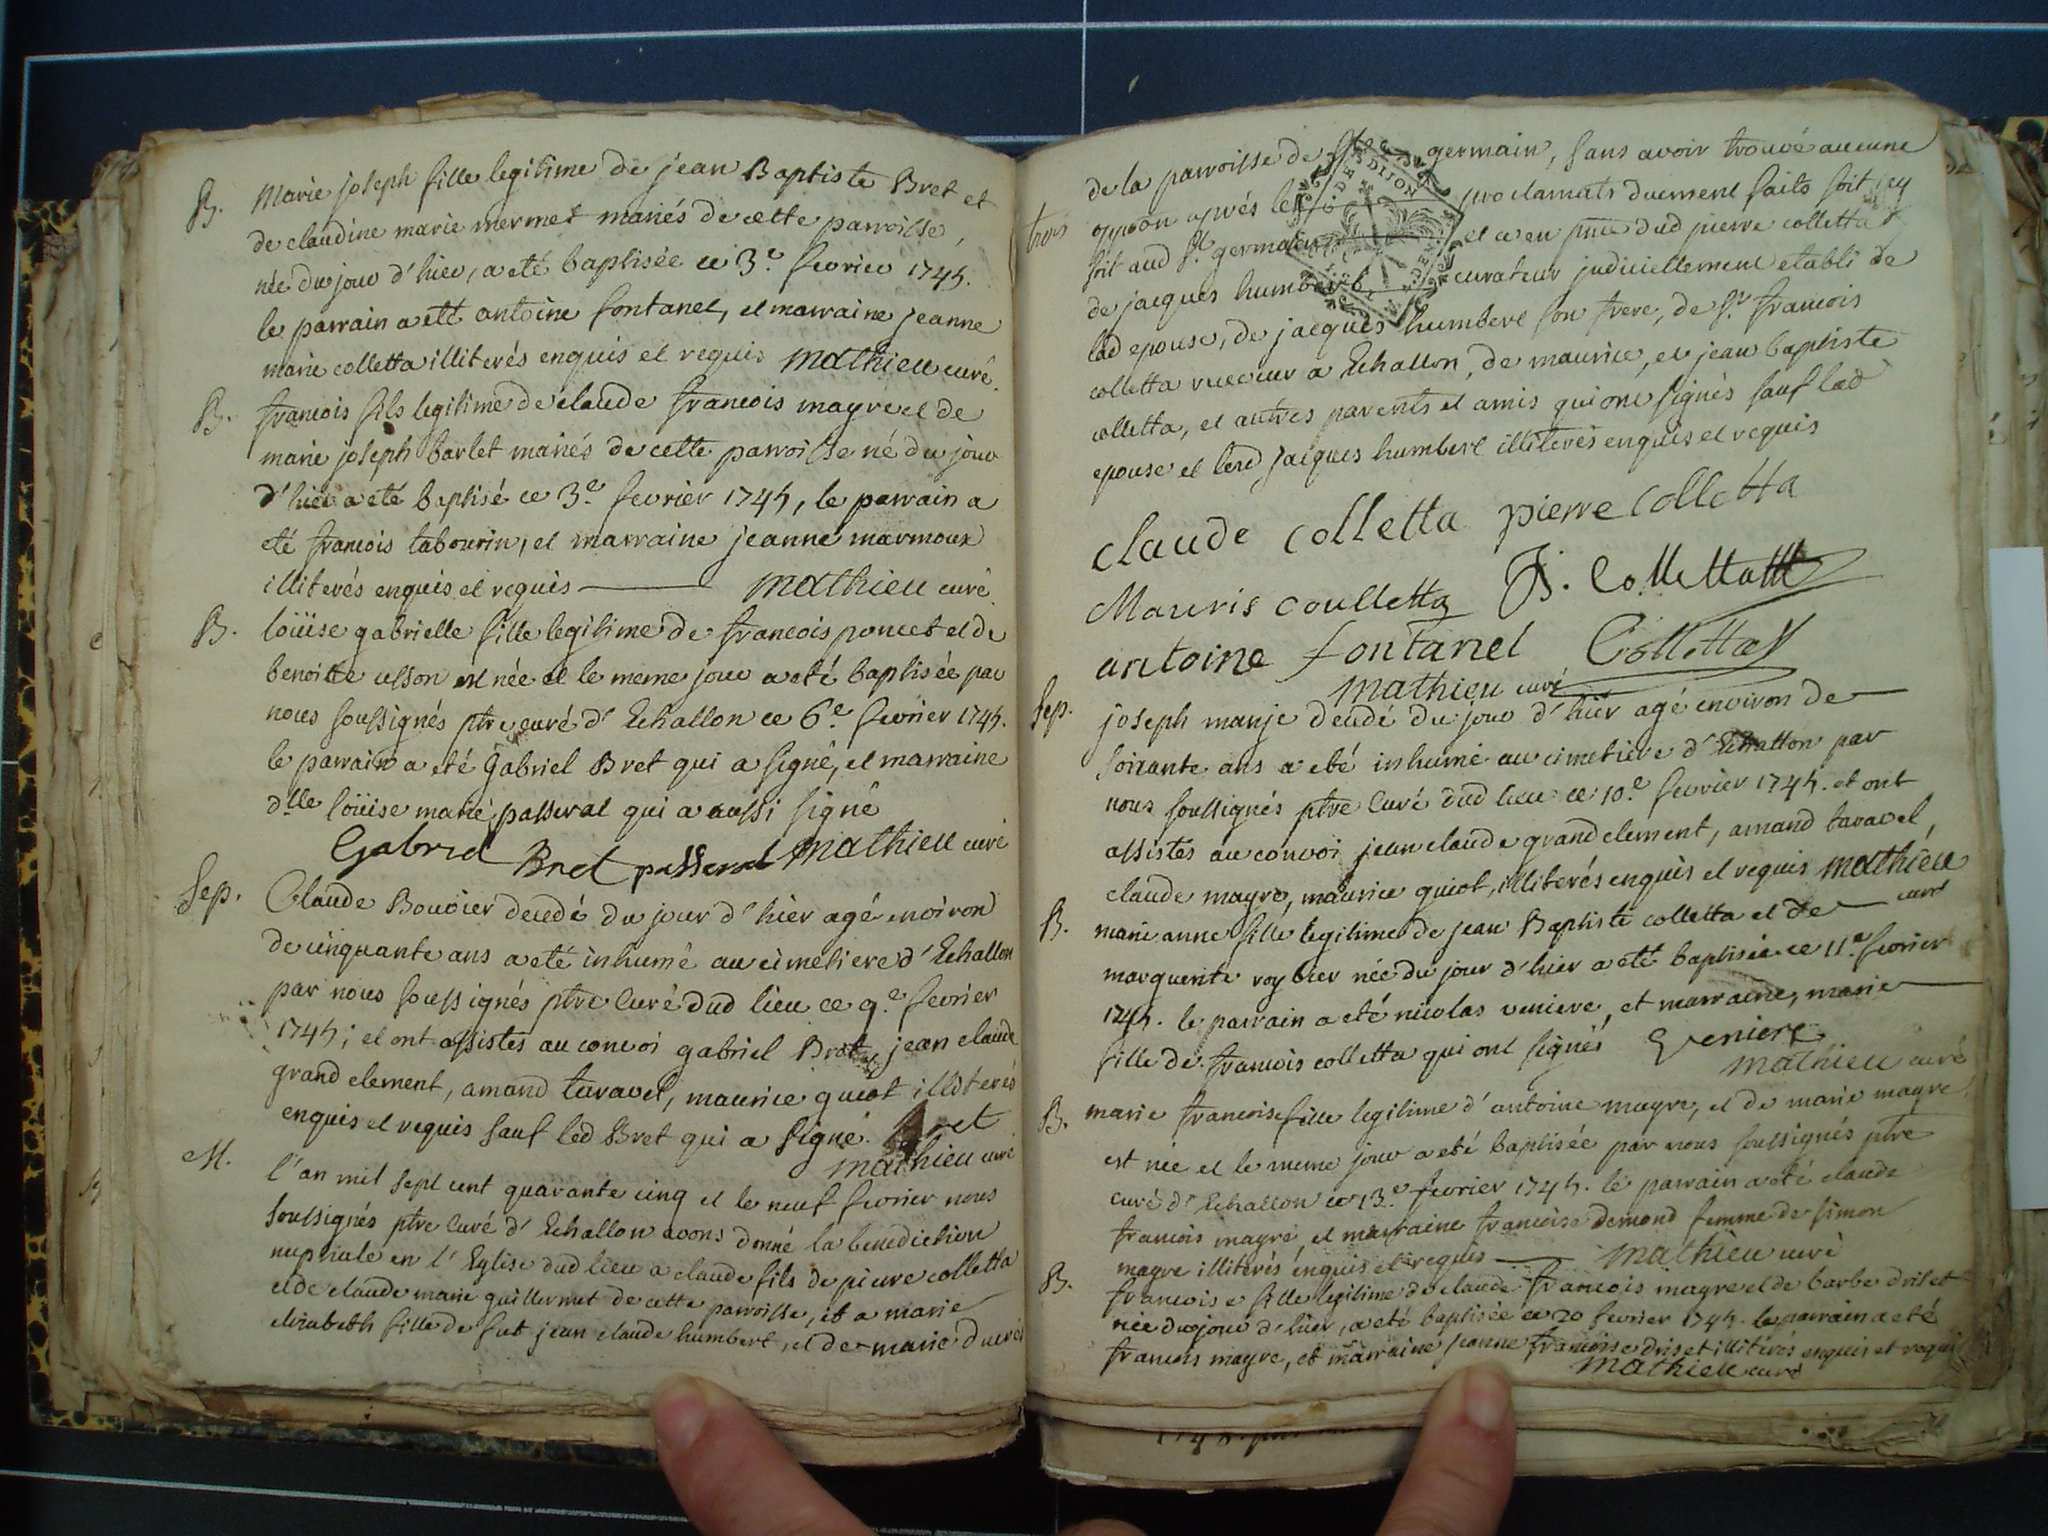 B. Marie joseph fille legitime de jean Baptiste Bret et
de claudine marie mermet mariés de cette parroisse,
née du jour d'hier, a eté baptisée ce 3.e fevrier 1745.
le parrain a eté antoine fontanet, et marraine jeanne
marie colletta illiterés enquis et requis Mathieu curé.
B. francois fils legitime de claude francois mayre et de
marie joseph barlet mariés de cette parroisse né du jour
d'hier a eté baptisé ce 3.e fevrier 1745, le parrain a
eté francois tabourin, et marraine jeanne marmoux
illiterés enquis et requis Mathieu curé
B. loüise gabrielle fille legitime de francois poncet et de
benoitte usson est née et le meme jour a eté baptisée par
nous soussignés ptre curé d'Echallon ce 6.e fevrier 1745.
le parrain a eté gabriel Bret qui a signé, et marraine
dlle loüise marie passerat qui a aussi signé
Gabriel Bret passerat Mathieu curé
Sep. Claude Bouvier decedé du jour d'hier agé environ
de cinquante ans a eté inhumé au cimetiere d'Echallon
par nous soussignés ptre curé dud lieu ce 9.e fevrier
1745; et ont assistés au convoi gabriel Bret, jean claude
grand clement, amand taravel, maurice guiot illiterés
enquis et requis sauf led Bret qui a signé. Bret
Mathieu curé
M. l'an mil sept cent quarante cinq et le neuf fevrier nous
soussignés ptre curé d'Echallon avons donné la benediction
nuptiale en l'Eglise dud lieu a claude fils de pierre colletta
et de claude marie guillermet de cette parroisse, et a marie
elizabeth fille de fut jean claude humbert, et de marie
de la parroisse de St germain, sans avoir trouvé aucune
trois opp̄on aprés les proclamats duement faits soit icy
soit aud St. germain et ce en dud pierre colletta
de jacques humbert, curateur judiciellement etabli de
lad epouse, de jacques humbert son frere, de Sr. francois
colletta receveur a Echallon, de maurice, et jean baptiste
colletta, et autres parents et amis qui ont signés sauf lad
epouse et led jacques humbert illiterés enquis et requis
claude colletta pierre colletta
Mauris coulletta J. Colletta
antoine fontanel Colletta
Mathieu curé
Sep. joseph manje decedé du jour d'hier agé environ de
soixante ans a eté inhumé au cimetiere d'Echallon par
nous soussignés ptre curé dud lieu ce 10.e fevrier 1745. et ont
assistés au convoi jean claude grand clement, amand taravel,
claude mayre, maurice guiot, illiterés enquis et requis Mathieu
curé
B. marie anne fille legitime de jean Baptiste colletta et de
marguerite roybier née du jour d'hier a eté baptisée ce 11.e fevrier
1745. le parrain a eté nicolas veniere, et marraine, marie
fille de francois colletta qui ont signés Veniere
Mathieu curé
B. marie francoise fille legitime d'antoine mayre, et de marie mayre
est née et le meme jour a eté baptisée par nous soussignés ptre
curé d'Echallon ce 13.e fevrier 1745. le parrain a eté claude
francois mayre, et marraine francoise demond femme de simon
mayre illiterés enquis et requis Mathieu curé
B. francoise fille legitime de claude francois mayre et de barbe driset
née du jour d'hier, a eté baptisée ce 20 fevrier 1745. le parrain a eté
francois mayre, et marraine jeanne francoise driset illiterés enquis et requis
Mathieu curé